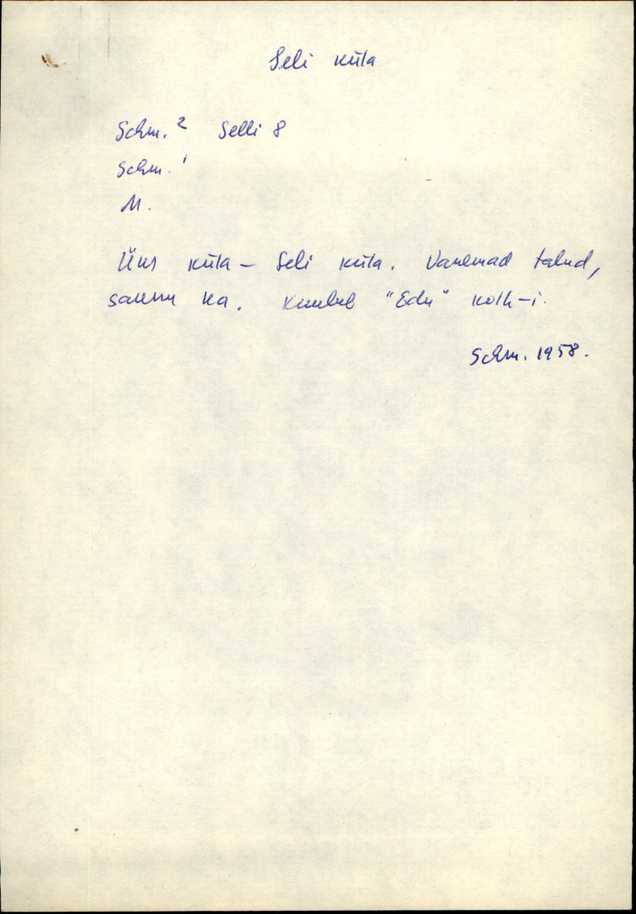 Seli küla
Schm.² Selli 8
Schm.¹
M.
Üks küla — Seli küla. Vanemad talud,
saunu ka. Kuulub "Edu" kolh-i.
Schm. 1958.